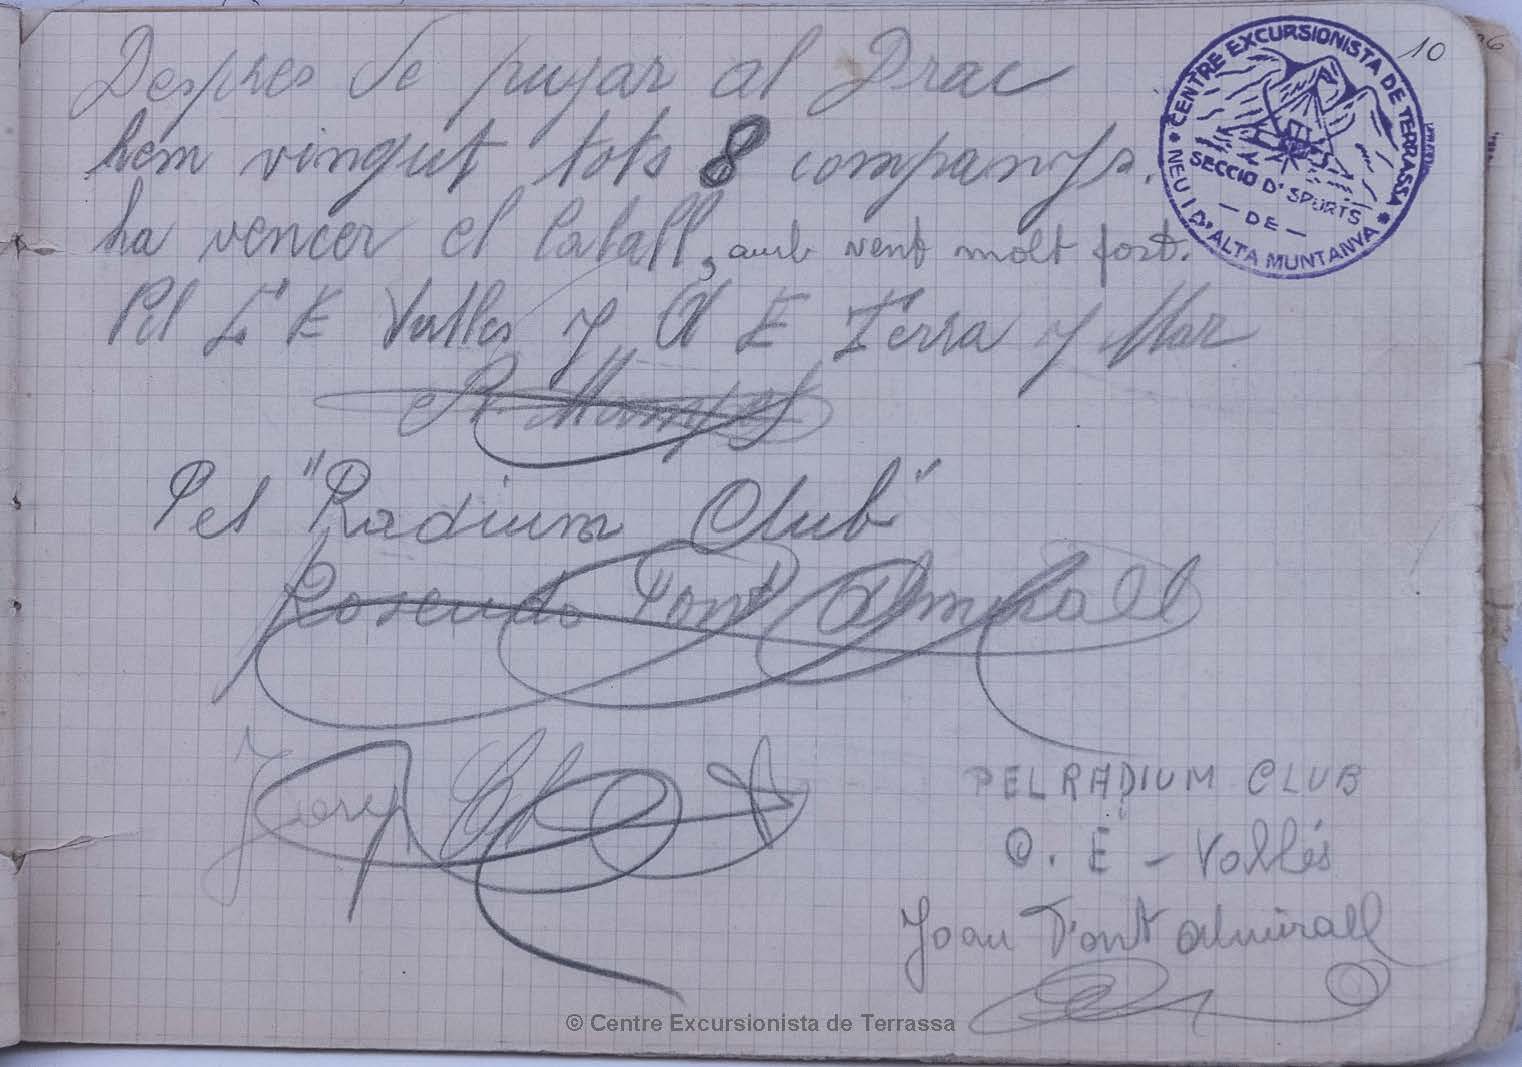 Despres de pujar al Drac
hem vingut tots 8 companys.
ha vencer el Caball, amb vent molt fort.
Pel C E Valles y Cl E Terra y Mar
Pel "Radium Club"
Rosendo Font Almirall
Josep
PEL RADIUM CLUB
O. E - Vallés
Joan Font Almirall
CENTRE EXCURSIONISTA DE TERRASSA
SECCIO D'SPORTS
- DE -
NEU I D'ALTA MUNTANYA
10
© Centre Excursionista de Terrassa